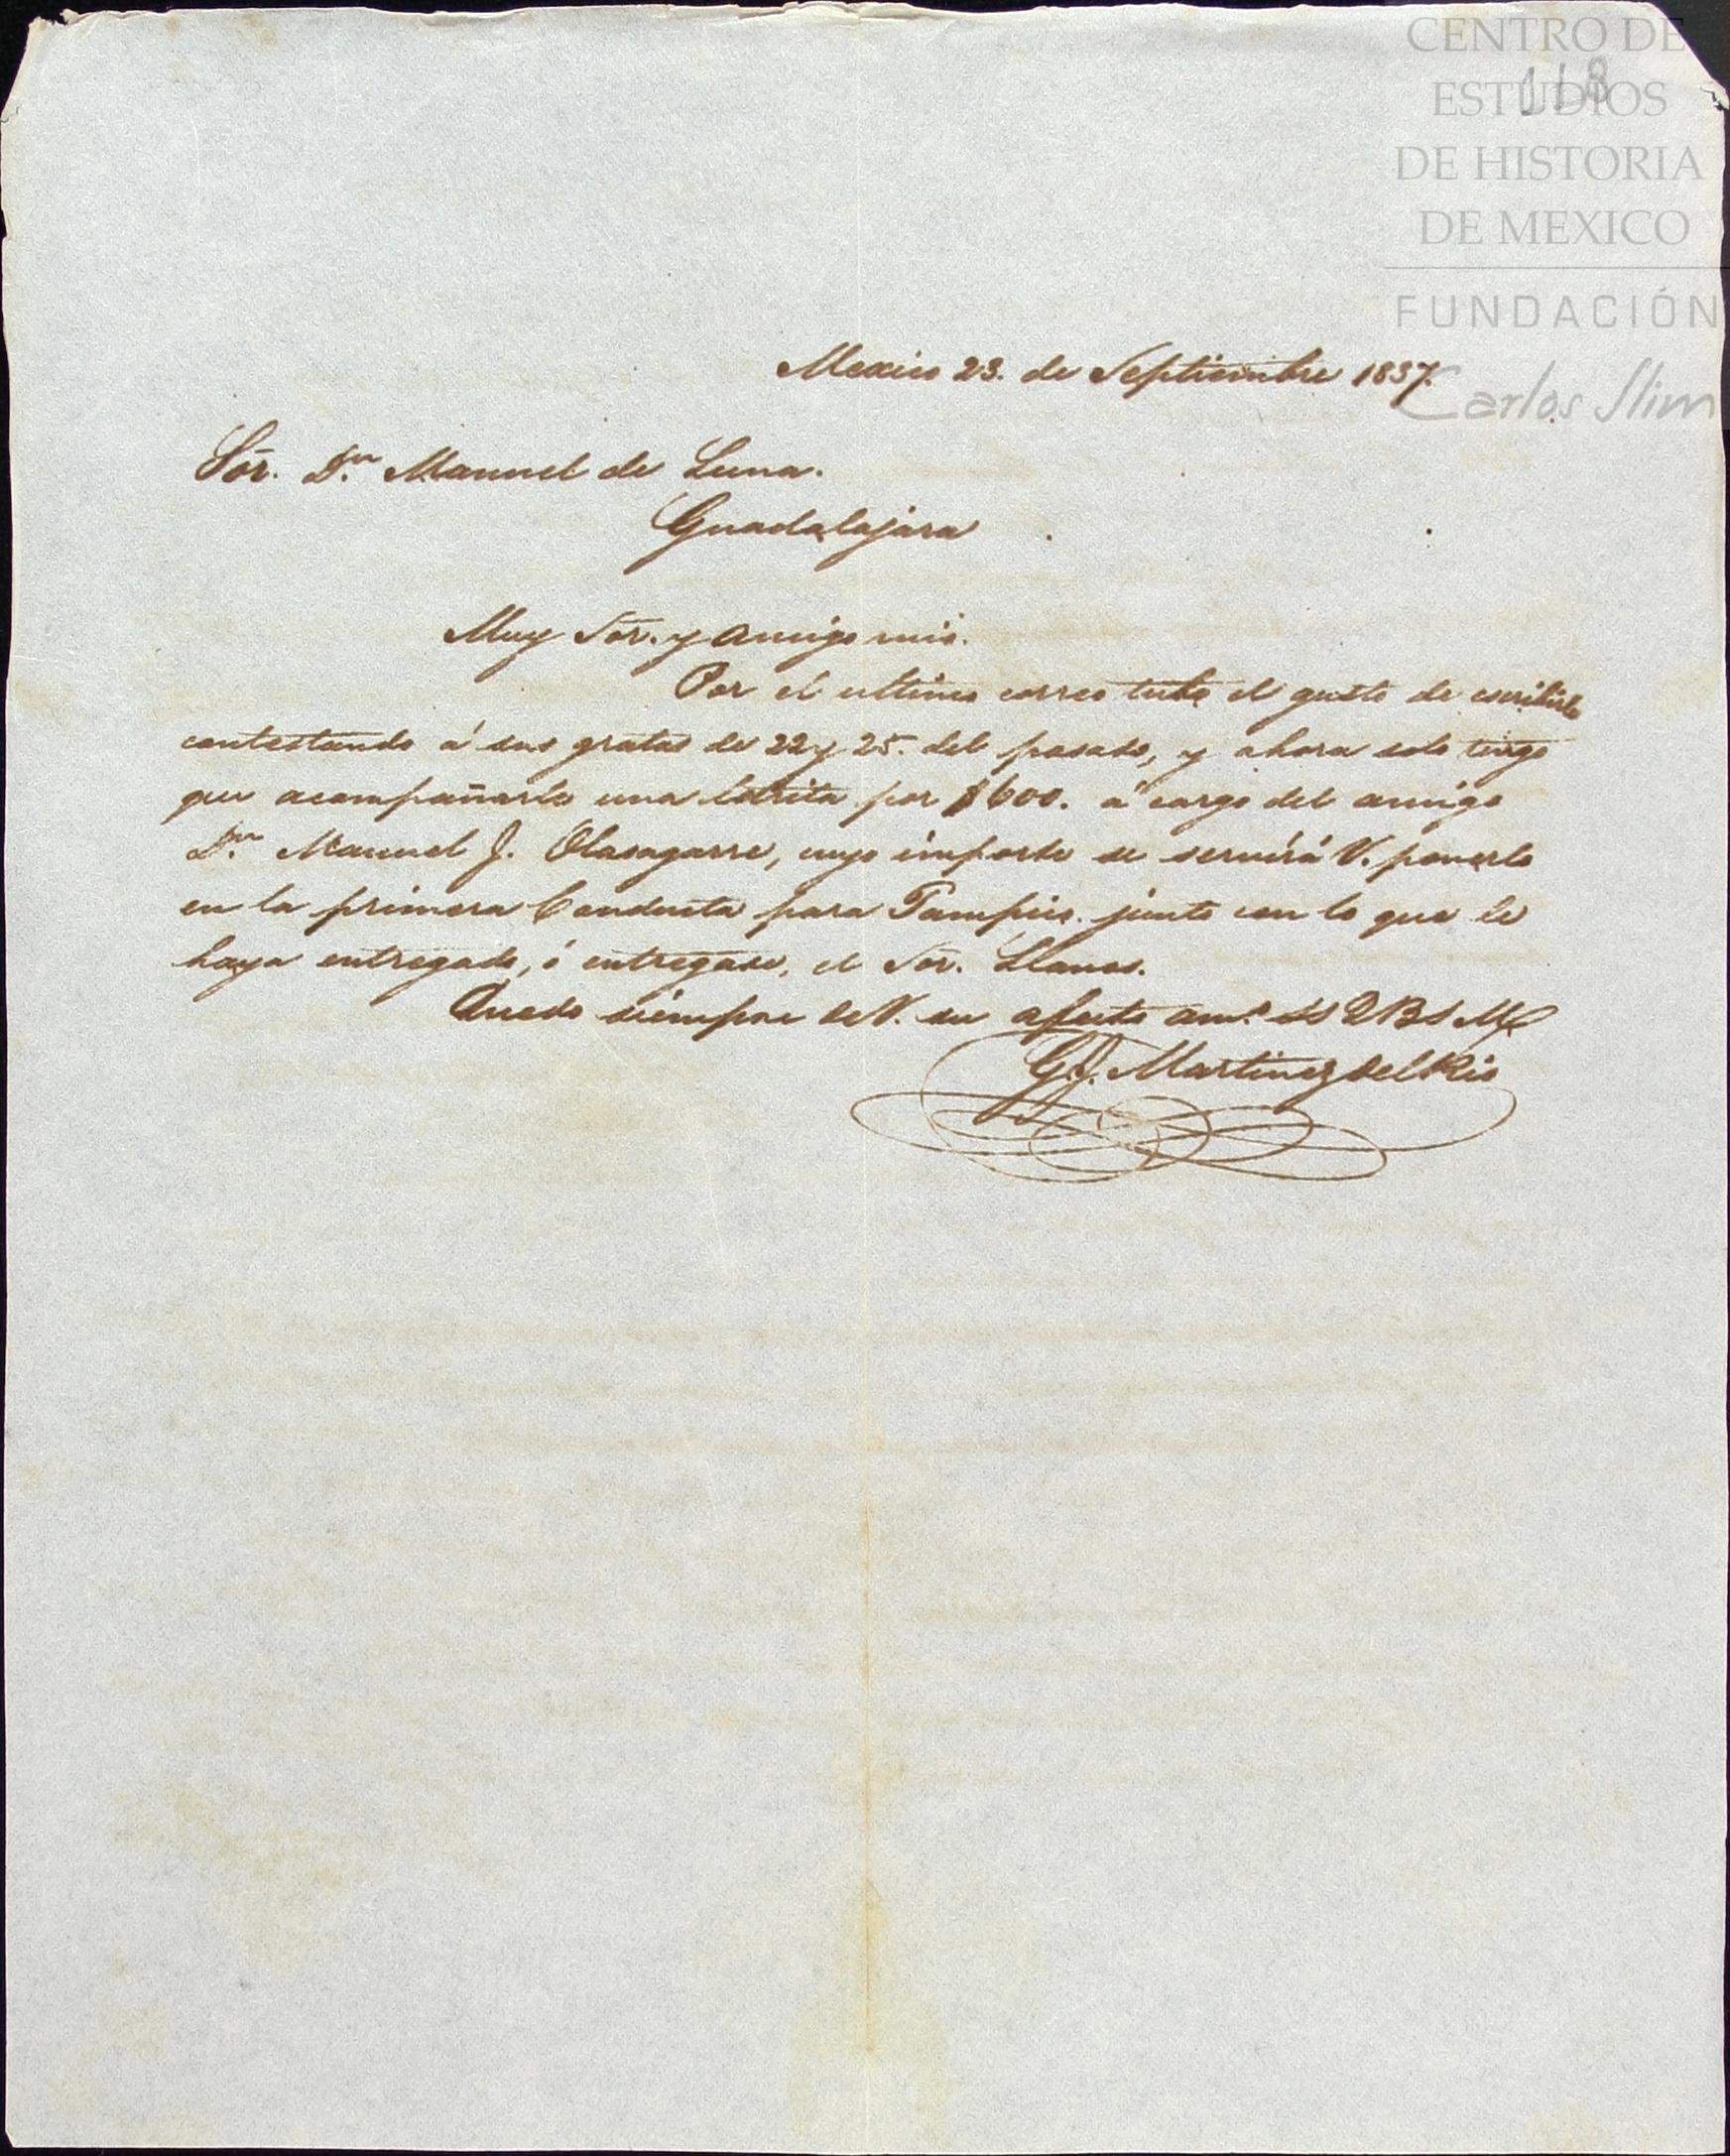 CENTRO DE
ESTUDIOS
DE HISTORIA
DE MEXICO
FUNDACIÓN
Carlos Slim
118
Mexico 23. de Septiembre 1837.
Sör. Dn. Manuel de Luna.
Guadalajara
Muy Sör. y amigo mio.
Por el ultimo correo tube el gusto de escribirle
contestando á sus gratas de 22 y 25. del pasado, y ahora solo tengo
que acompañarle una letrita por $600. á cargo del amigo
Dn. Manuel J. Olasagarre, cuyo importe se servirá V. ponerlo
en la primera Conducta para Tampico. junto con lo que le
haya entregado, ó entregase, el Sör. Llanos.
Quedo siempre de V. su afecto amo. SS Q B S M
G. J. Martinez del Rio